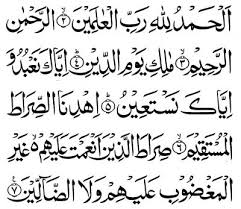 اَلْحَمْدُ لِلّٰهِ رَبِّ الْعٰلَمِيْنَ ۙ﴿۲﴾ الرَّحْمٰنِ
الرَّحِيْمِ ۙ﴿۳﴾ مٰلِكِ يَوْمِ الدِّيْنِ ؕ﴿۴﴾ اِيَّاكَ نَعْبُدُ وَ
اِيَّاكَ نَسْتَعِيْنُ ؕ﴿۵﴾ اِهْدِنَا الصِّرَاطَ
الْمُسْتَقِيْمَ ۙ﴿۶﴾ صِرَاطَ الَّذِيْنَ اَنْعَمْتَ عَلَيْهِمْ ۙ۬ۥ غَيْرِ
الْمَغْضُوْبِ عَلَيْهِمْ وَلَا الضَّآلِّيْنَ ﴿۷﴾